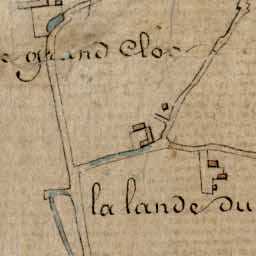 e grand Clos
la lande du